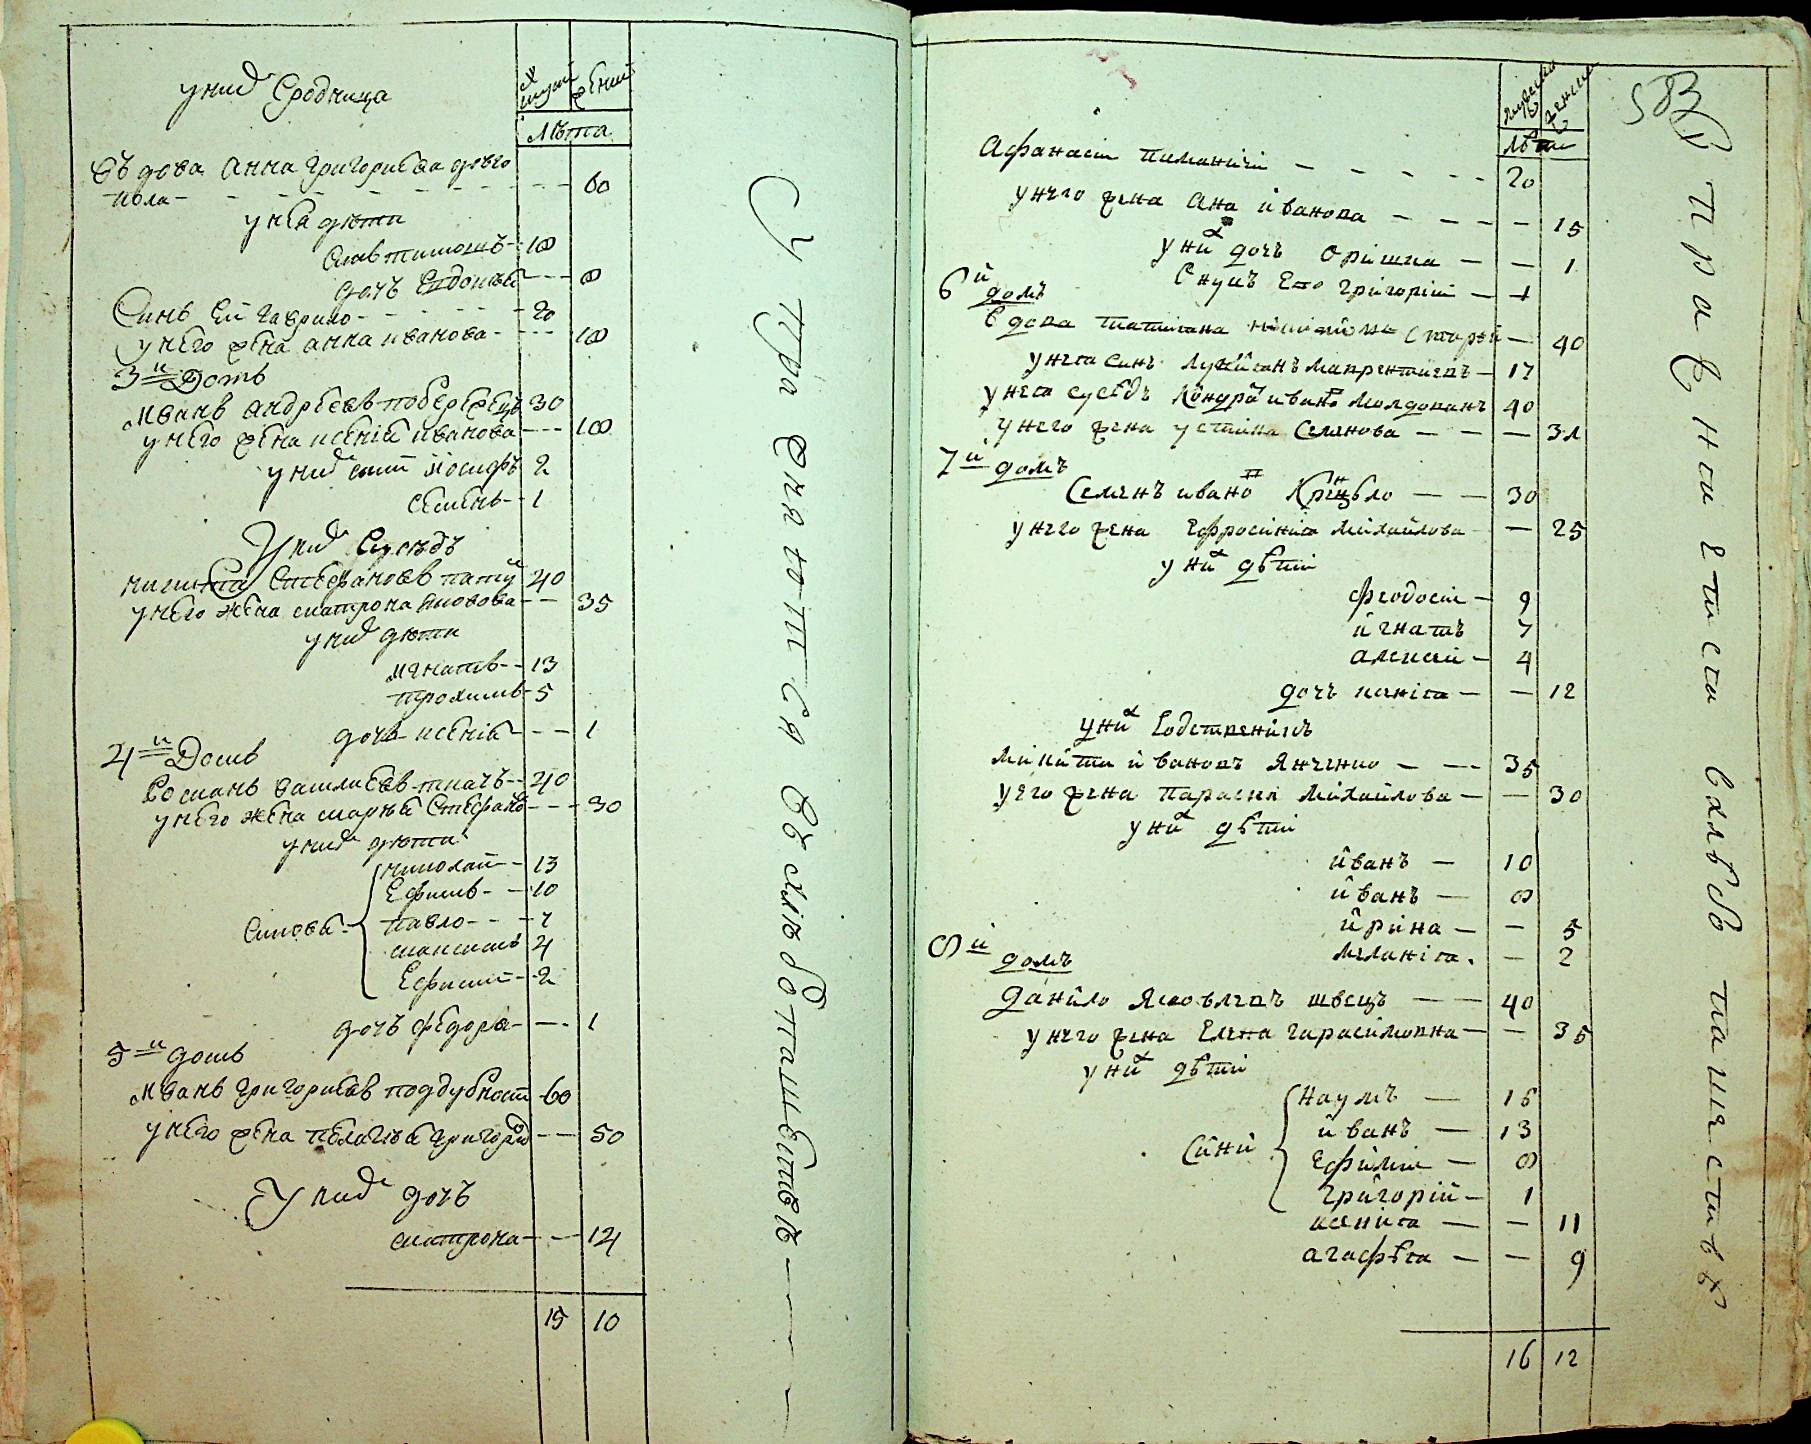 у них Сродница
мужеск женск
лѣта
Въдова Анна Григориева довго
пола - 60
у нея дѣти
Син тимошъ - 18
дочъ Евдокия - 8
Синъ Ей Гаврило - 20
у него жена анна иванова - 18
3й Домъ
Иванъ андрѣевъ побережецъ 30
у него жена ксенія иванова - 18
у них син иосифъ 2
семенъ - 1
У них Сусѣдъ
никита Стефановъ 40
у него жена матрона - 35
у них дѣти
игнатъ - 13
трохимъ - 5
дочъ ксенія - 1
4й Домъ
Романъ василиевъ ткачъ - 40
у него жена марія Стефано - 30
у них дѣти
Синовѣ
николай - 13
Ефимъ - 10
павло - 7
максимъ 4
Ефимий - 2
дочъ федора - 1
5й домъ
Иванъ григориевъ поддубной - 60
у него жена пелагѣя григорио - 50
У них дочъ
матрона - 12
15 10
У пражнюются въ хлѣбопашествѣ
мужеска женска
лѣта
583
Афанасіи - 20
у него жена Ана иванова - 15
у них дочъ Оришка - 1
Внукъ Его григоріи - 1
6й домъ
Вдова татіяна - 40
у нея синъ Лукіянъ Лаврентиевъ - 17
у нея сусѣдъ Кондра ивано Молдованъ 40
у него жена устина Семенова - 31
7й домъ
Семенъ ивано - 30
у него жена Ефросинія Михайлова - 25
у них дѣти
феодосіи - 9
игнатъ 7
алексей - 4
дочъ ксенія - 12
у них Родственикъ
Микита ивановъ Янченко - 35
у его жена Параска Михайлова - 30
у них дѣти
иванъ - 10
иванъ - 8
ирина - 5
меланія - 2
8й домъ
Данило Яковлевъ швецъ - 40
у него жена Елена гарасимовна - 35
у них дѣти
Сини
Наумъ - 15
иванъ - 13
Ефимии - 8
григорій - 1
ксенія - 11
агафѣя - 9
16 12